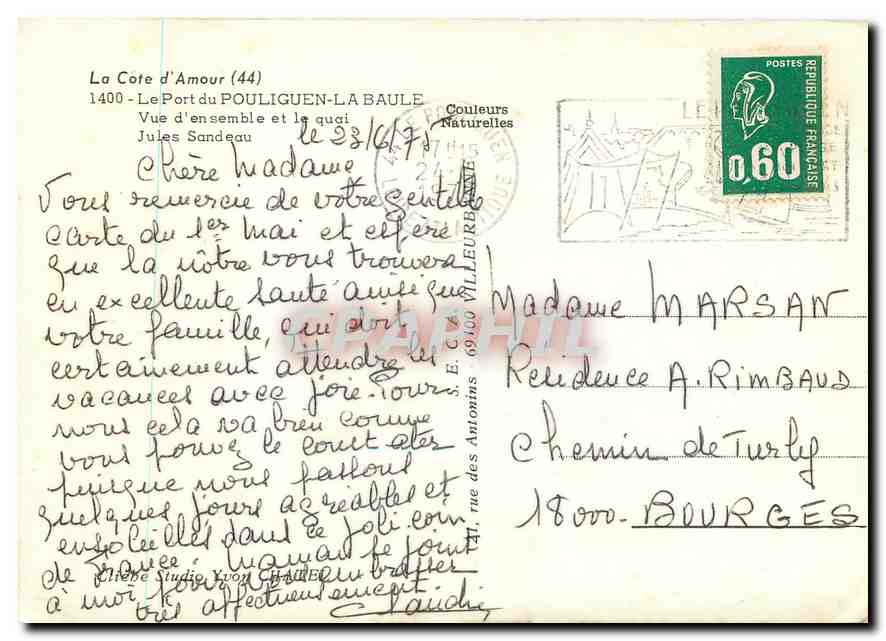 La Côte d'Amour (44)
1400 - Le Port du POULIGUEN-LA BAULE
Vue d'ensemble et le quai
Jules Sandeau
Couleurs
Naturelles
le 23/6/75
Chère Madame
Vous remercie de votre gentille
carte du 1er mai et espère
que la nôtre vous trouvera
en excellente santé ainsi que
votre famille, qui doit
certainement attendre les
vacances avec joie. Pour
nous cela va bien comme
vous pouvez le constater
puisque nous passons
quelques jours agréables et
ensoleillés dans ce joli coin
de France. Maman se joint
à moi pour vous embrasser
très affectueusement.
Claudie
Cliché Studio Yvon
S. E. C. A.
41, rue des Antonins - 69100 VILLEURBANNE
CPAPHIL
POSTES
REPUBLIQUE FRANÇAISE
0,60
17H15
Madame MARSAN
Résidence A. RIMBAUD
Chemin de Turly
18000 - BOURGES